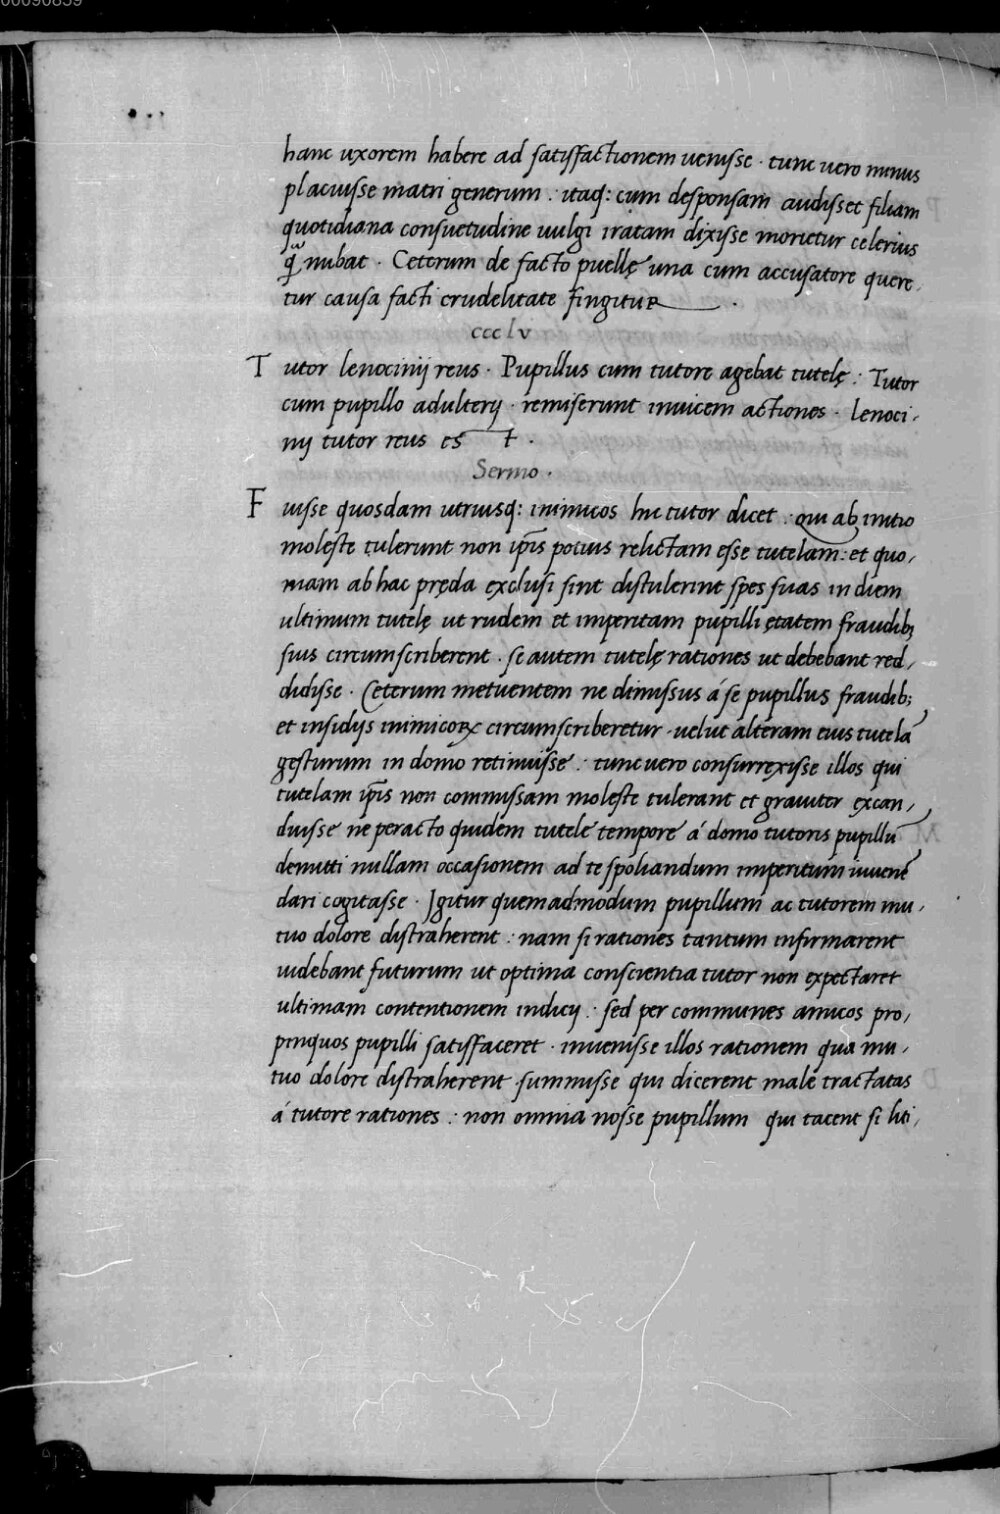 00090859
hanc uxorem habere ad satisfactionem uenisse · tunc uero minus
placuisse matri generum : itaq: cum desponsam audisset filiam
quotidiana consuetudine uulgi iratam dixisse morietur celerius
q̃ nubat · Ceterum de facto puellę una cum accusatore quere
tur causa facti crudelitate fingitur
ccclv
Tutor lenocinij reus · Pupillus cum tutore agebat tutelę : Tutor
cum pupillo adulterij · remiserunt inuicem actiones · lenoci,
nij tutor reus es t ·
Sermo ·
Fuisse quosdam utriusq: inimicos hic tutor dicet : qui ab initio
moleste tulerunt non ip̃is potius relictam esse tutelam : et quo,
niam ab hac pręda exclusi sint distulerint spes suas in diem
ultimum tutelę ut rudem et imperitam pupilli ętatem fraudib;
suis circumscriberent · se autem tutelę rationes ut debebant red,
didisse · Ceterum metuentem ne dimissus á se pupillus fraudib;
et insidijs inimicoꝝ circumscriberetur · uelut alteram eius tutelā
gesturum in domo retinuisse : tunc uero consurrexisse illos qui
tutelam ip̃is non commissam moleste tulerant et grauiter excan,
duisse ne peracto quidem tutele tempore á domo tutoris pupillū
demitti nullam occasionem ad te spoliandum imperitum iuuenē
dari cogitasse · Igitur quemadmodum pupillum ac tutorem mu,
tuo dolore distraherent : nam si rationes tantum infirmarent
uidebant futurum ut optima conscientia tutor non expectaret
ultimam contentionem iudicij : sed per communes amicos pro,
pinquos pupilli satisfaceret · inuenisse illos rationem qua mu,
tuo dolore distraherent summisse qui dicerent male tractatas
á tutore rationes : non omnia nosse pupillum qui tacent si liti,